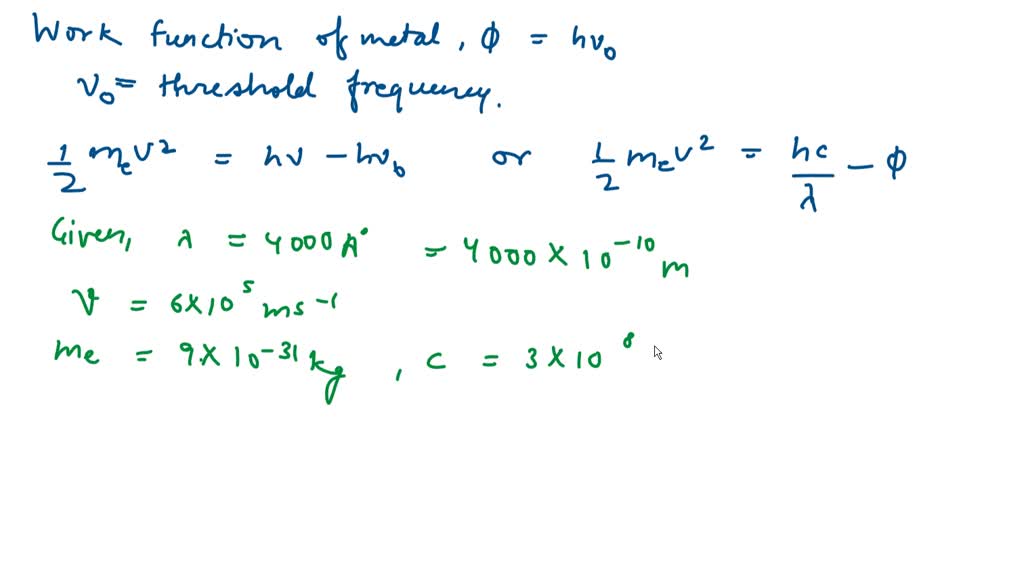 Work function of metal, ϕ = hν₀
ν₀ = threshold frequency.
1/2 mₑv² = hν - hν₀ or 1/2 mₑv² = hc/λ - ϕ
Given, λ = 4000 A° = 4000 × 10⁻¹⁰ m
v = 6×10⁵ ms⁻¹
me = 9×10⁻³¹ kg, c = 3×10⁸